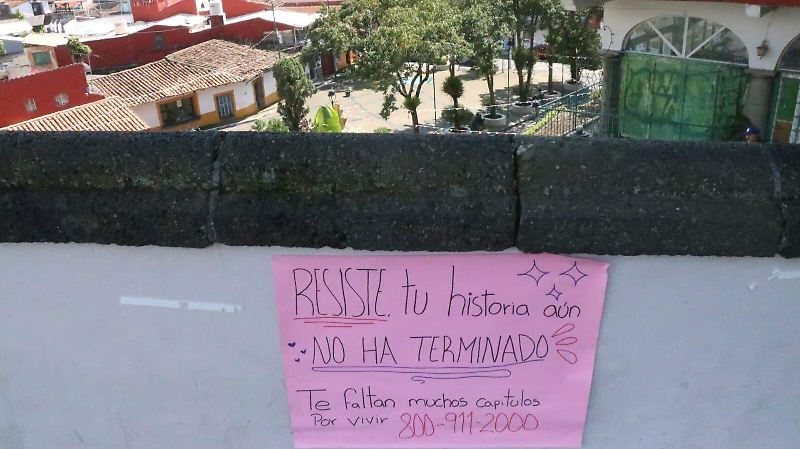 RESISTE, tu historia aún
NO HA TERMINADO
Te faltan muchos capitulos
Por vivir 800-911-2000